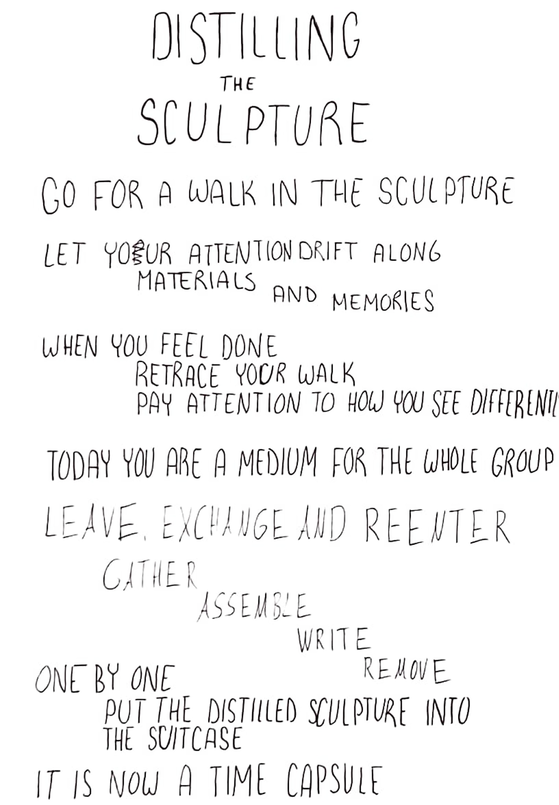 DISTILLING
THE
SCULPTURE
GO FOR A WALK IN THE SCULPTURE
LET YOUR ATTENTION DRIFT ALONG
MATERIALS
AND MEMORIES
WHEN YOU FEEL DONE
RETRACE YOUR WALK
PAY ATTENTION TO HOW YOU SEE DIFFERENTL
TODAY YOU ARE A MEDIUM FOR THE WHOLE GROUP
LEAVE, EXCHANGE AND REENTER
GATHER
ASSEMBLE
WRITE
REMOVE
ONE BY ONE
PUT THE DISTILLED SCULPTURE INTO
THE SUITCASE
IT IS NOW A TIME CAPSULE